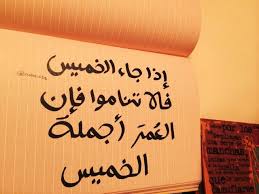 إذا جاء الخميس
فلا تناموا فإن
العمر أجملة
الخميس
por los